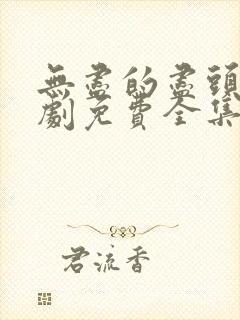 無盡的盡頭
劇免費全集
君流香